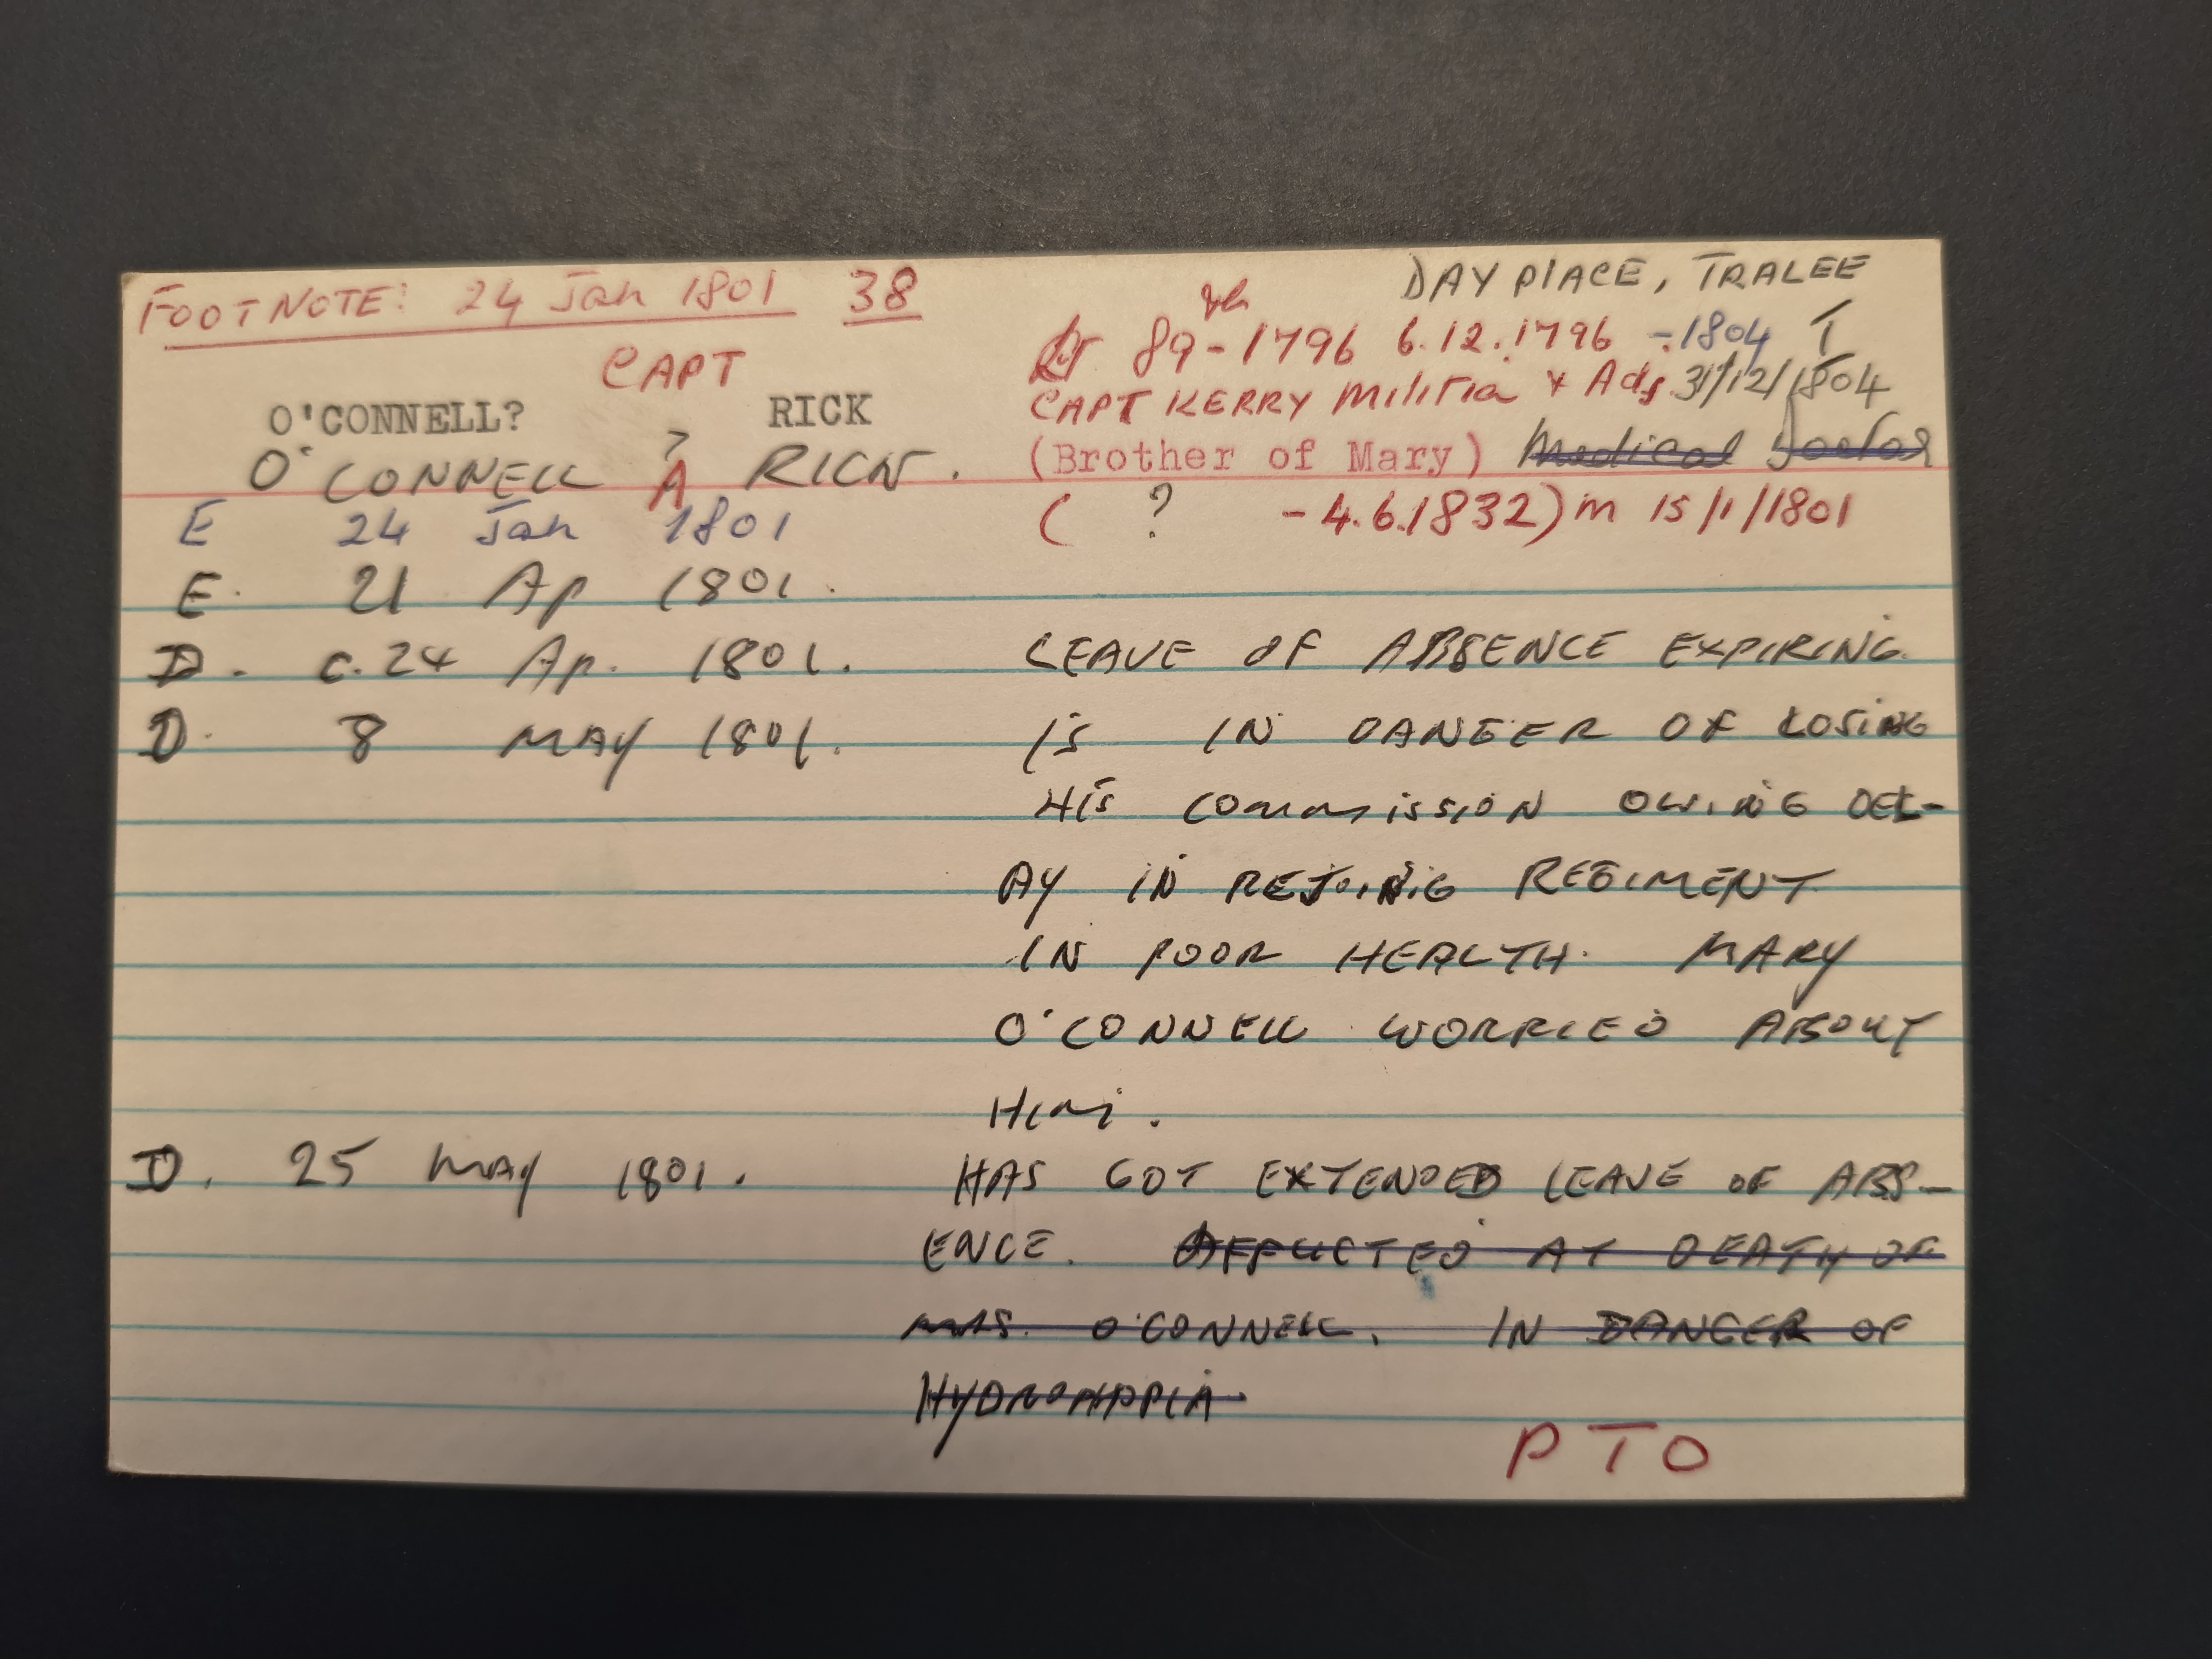 FOOTNOTE: 24 Jan 1801 38
DAY PLACE, TRALEE
CAPT
Lt. 89th - 1796 6.12.1796 - 1804
O'CONNELL? RICK
CAPT KERRY Militia & Adj. 31/12/1804
O'CONNELL ? A RICK.
(Brother of Mary) Medical Doctor
E 24 Jan 1801
( ? - 4.6.1832) m 15/1/1801
E. 21 Ap 1801.
D. c. 24 Ap. 1801. LEAVE OF ABSENCE EXPIRING.
D. 8 MAY 1801. IS IN DANGER OF LOSING
HIS COMMISSION OWING DEL-
AY IN REJOINIG REGIMENT
IN POOR HEALTH. MARY
O'CONNELL WORRIED ABOUT
HIM.
D. 25 MAY 1801. HAS GOT EXTENDED LEAVE OF ABS-
ENCE. AFFLICTED AT DEATH OF
MRS. O'CONNELL. IN DANGER OF
PTO